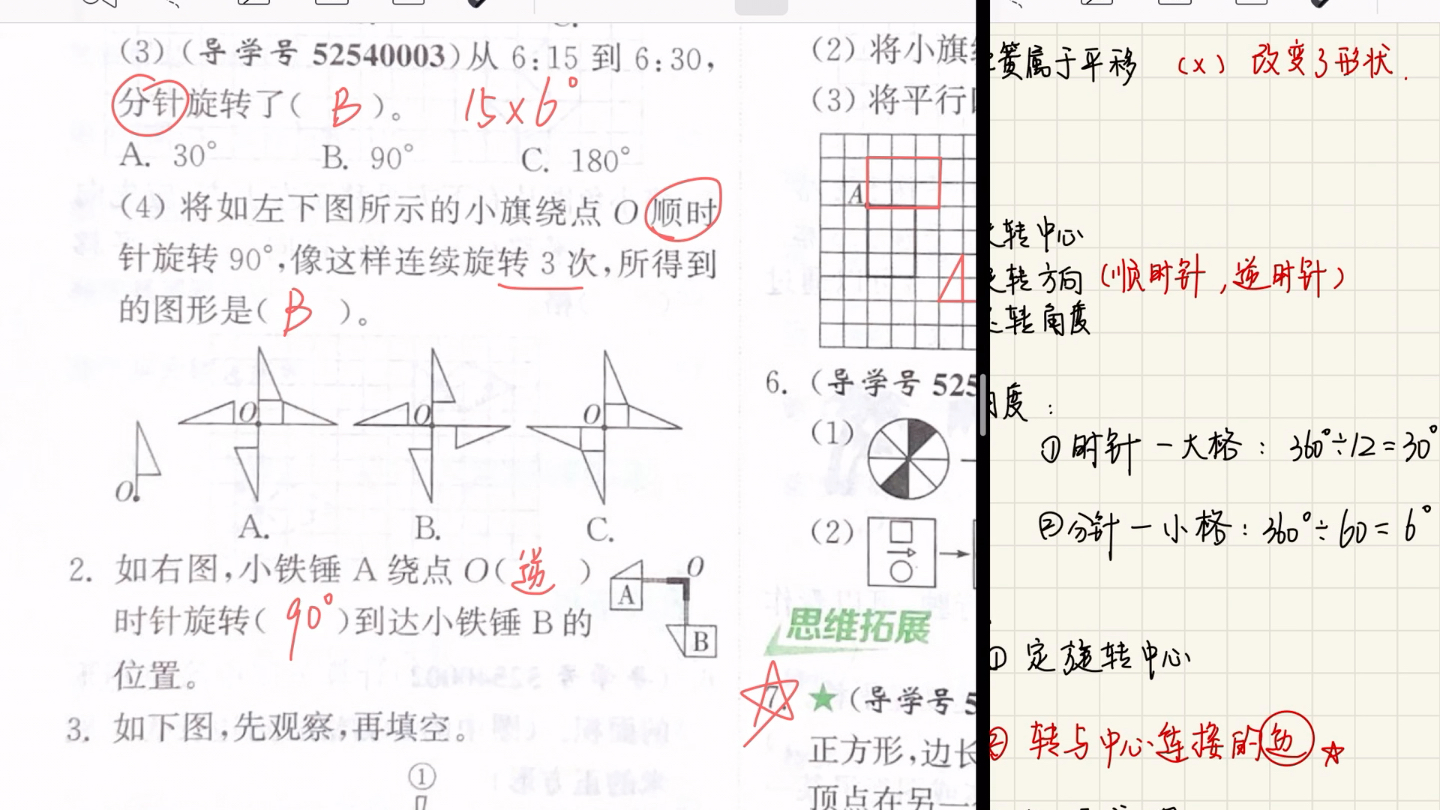 (3)(导学号 52540003)从 6:15 到 6:30,
分针旋转了( B )。 15×6°
A. 30° B. 90° C. 180°
(4) 将如左下图所示的小旗绕点 O 顺时
针旋转 90°,像这样连续旋转 3 次,所得到
的图形是( B )。
O
O
O
O
A. B. C.
2. 如右图,小铁锤 A 绕点 O( 逆 )
时针旋转( 90° )到达小铁锤 B 的
位置。
O
A
B
3. 如下图,先观察,再填空。
①
(2) 将小旗
(3) 将平行
A
6. (导学号 525
(1)
(2)
思维拓展
7. ★(导学号 5
正方形,边长
顶点在另一
属于平移 (×) 改变了形状.
转中心
转方向(顺时针,逆时针)
转角度
度:
①时针一大格: 360°÷12=30°
②分针一小格: 360°÷60=6°
① 定旋转中心
② 转与中心连接的边 ☆